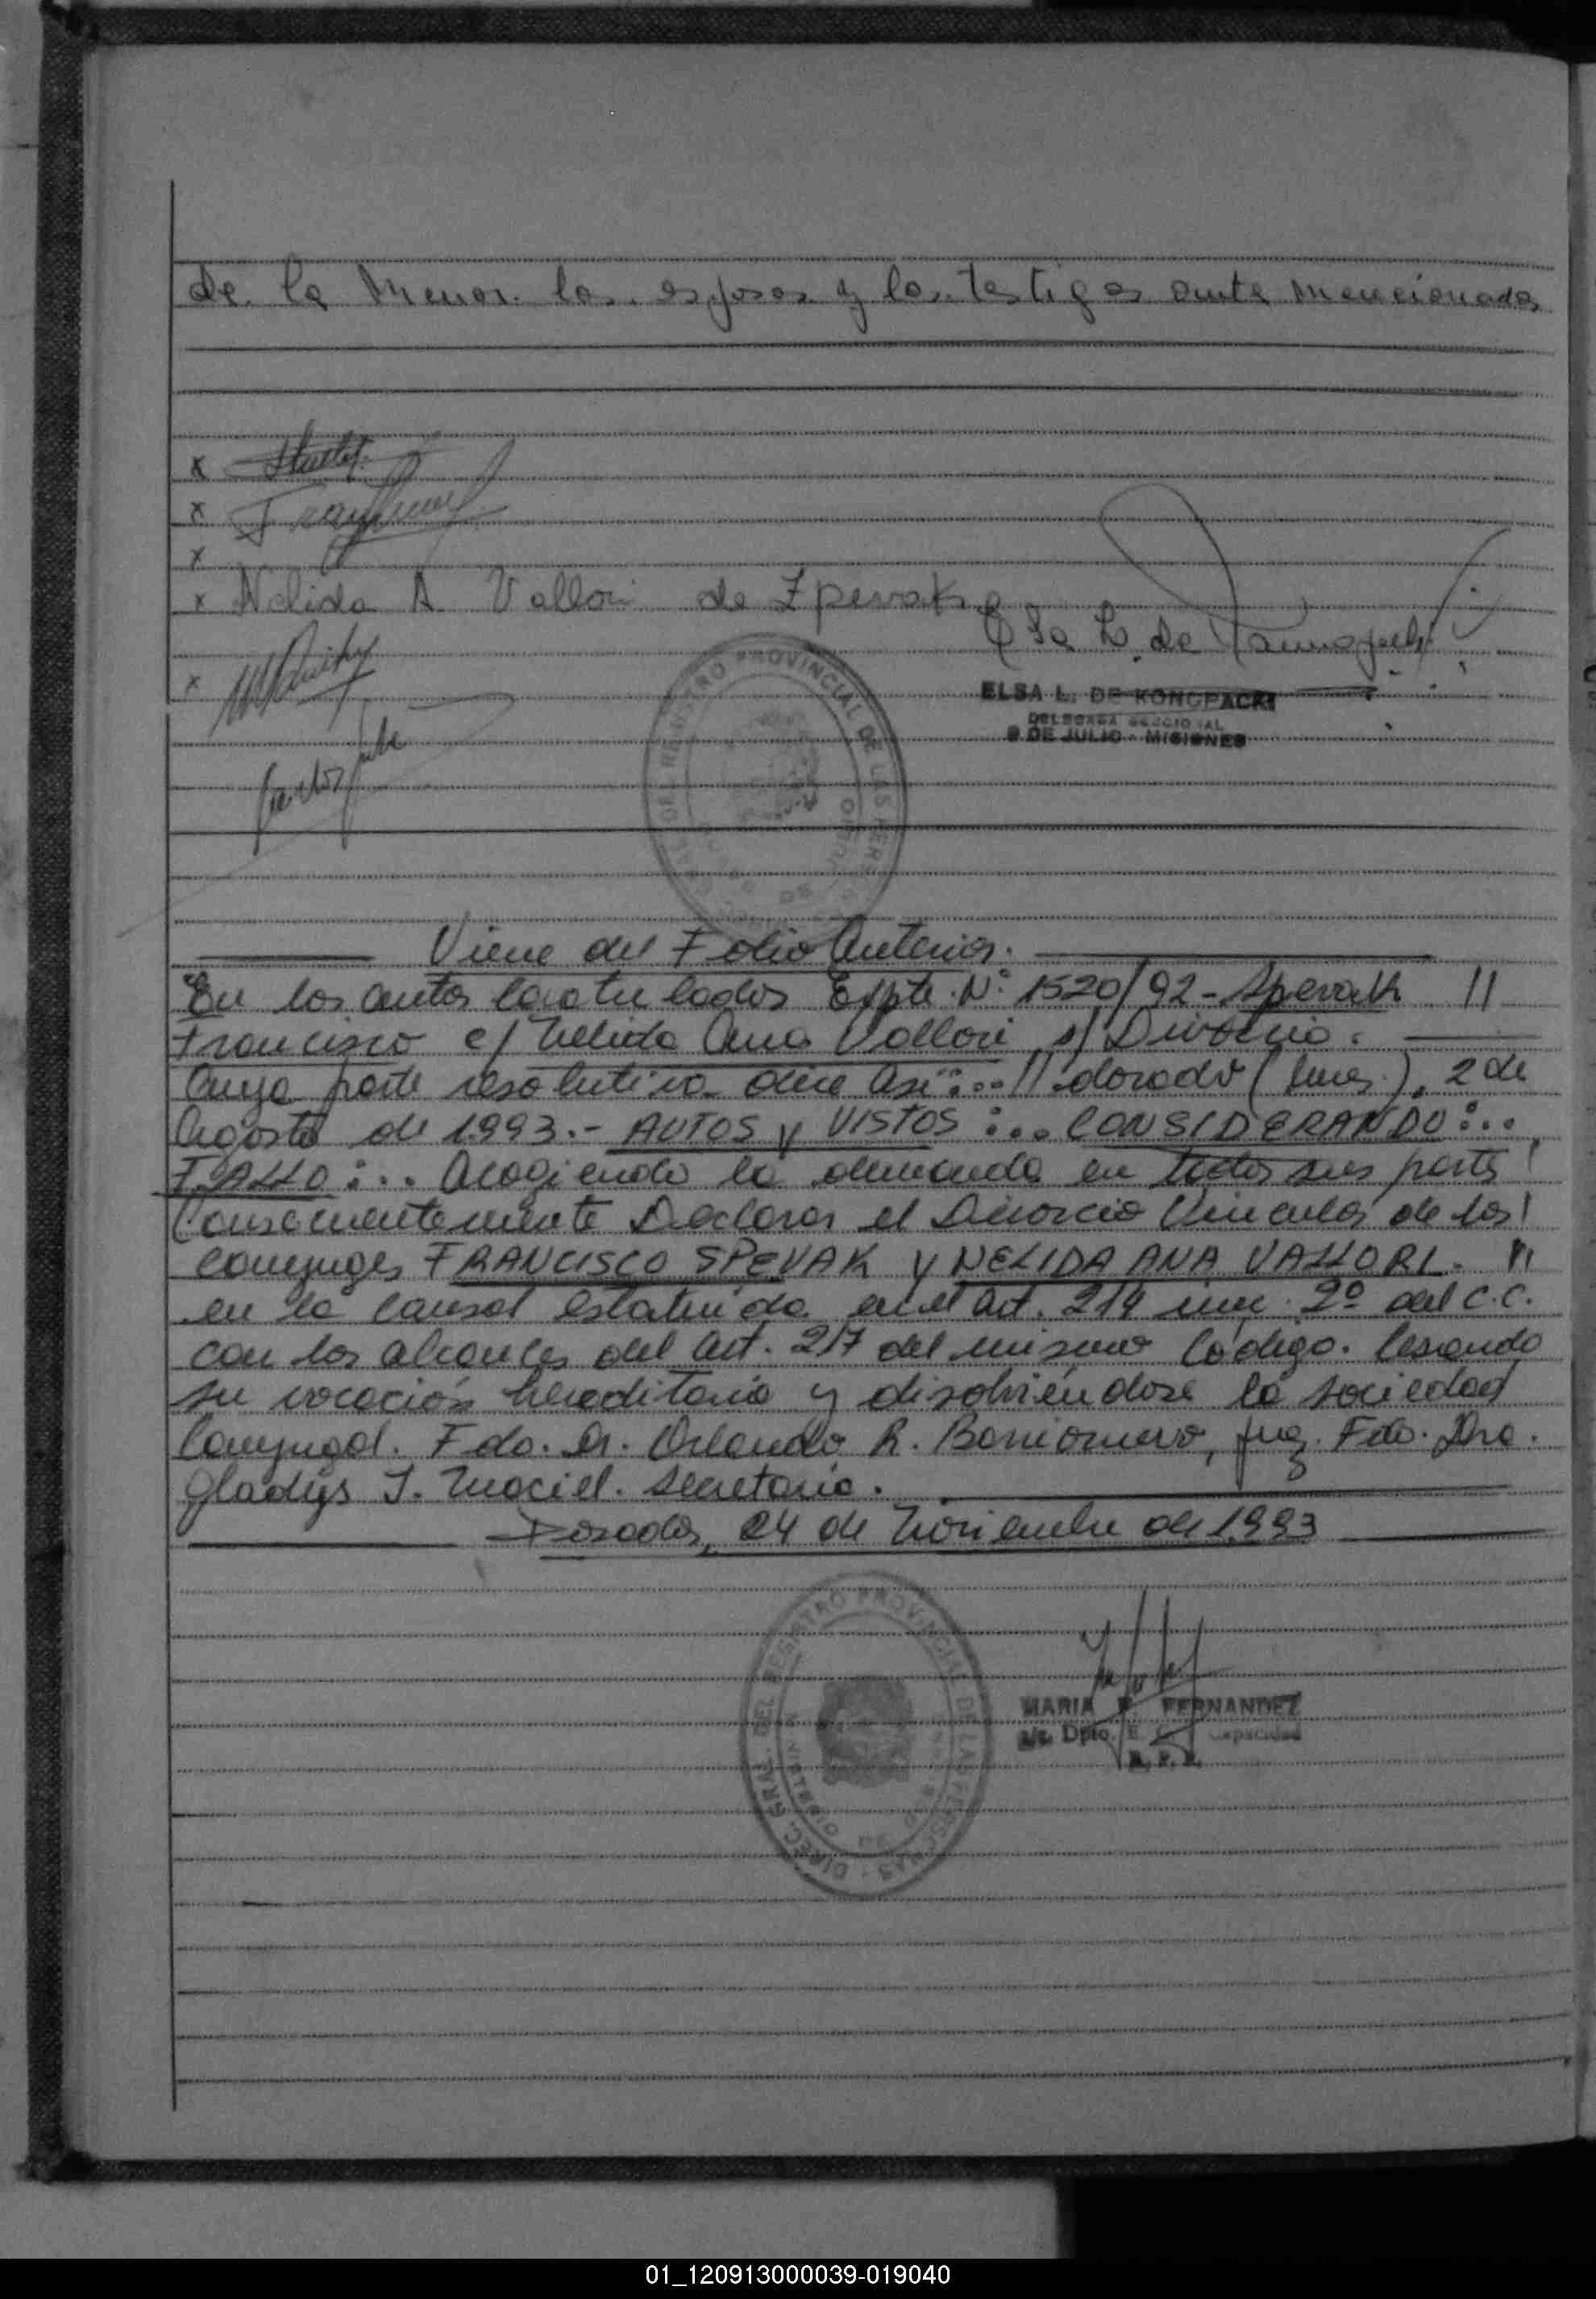 de la Menor. los esposos y los testigos ante mencionados
x
x
x
x Nelida A. Vallori de Zpevak
x
Elsa L. de
ELSA L. DE KONOPACKI
DELEGADA SECCIONAL
9 DE JULIO - MISIONES
REGISTRO PROVINCIAL DE LAS PERSONAS
Viene del Folio Anterior.
En los autos caratulados Expte. Nº 1520/92 - Spevak //
Francisco c/ Nelida Ana Vallori s/ Divorcio.
Cuya parte resolutiva dice así:... // dorado (Mnes.), 2 de
Agosto de 1993.- AUTOS y VISTOS:... CONSIDERANDO:...
FALLO:... Acogiendo la demanda en todas sus partes
Consecuentemente Declarar el Divorcio Vincular de los
conyuges FRANCISCO SPEVAK y NELIDA ANA VALLORI. //
en la causal estatuida en el art. 214 inc. 2º del C.C.
con los alcances del art. 217 del mismo Código. Cesando
su vocación hereditaria y disolviéndose la sociedad
Conyugal. Fdo. Dr. Orlando R. , Juez. Fdo. Dra.
Gladys J. Maciel. Secretaria.
Posadas, 24 de Noviembre de 1993
DIREC. GRAL. DEL REGISTRO PROVINCIAL DE LAS PERSONAS
MINISTERIO DE
MARIA FERNANDEZ
a/c. Dpto. E. C. y Capacidad
R. P. P.
01_120913000039-019040